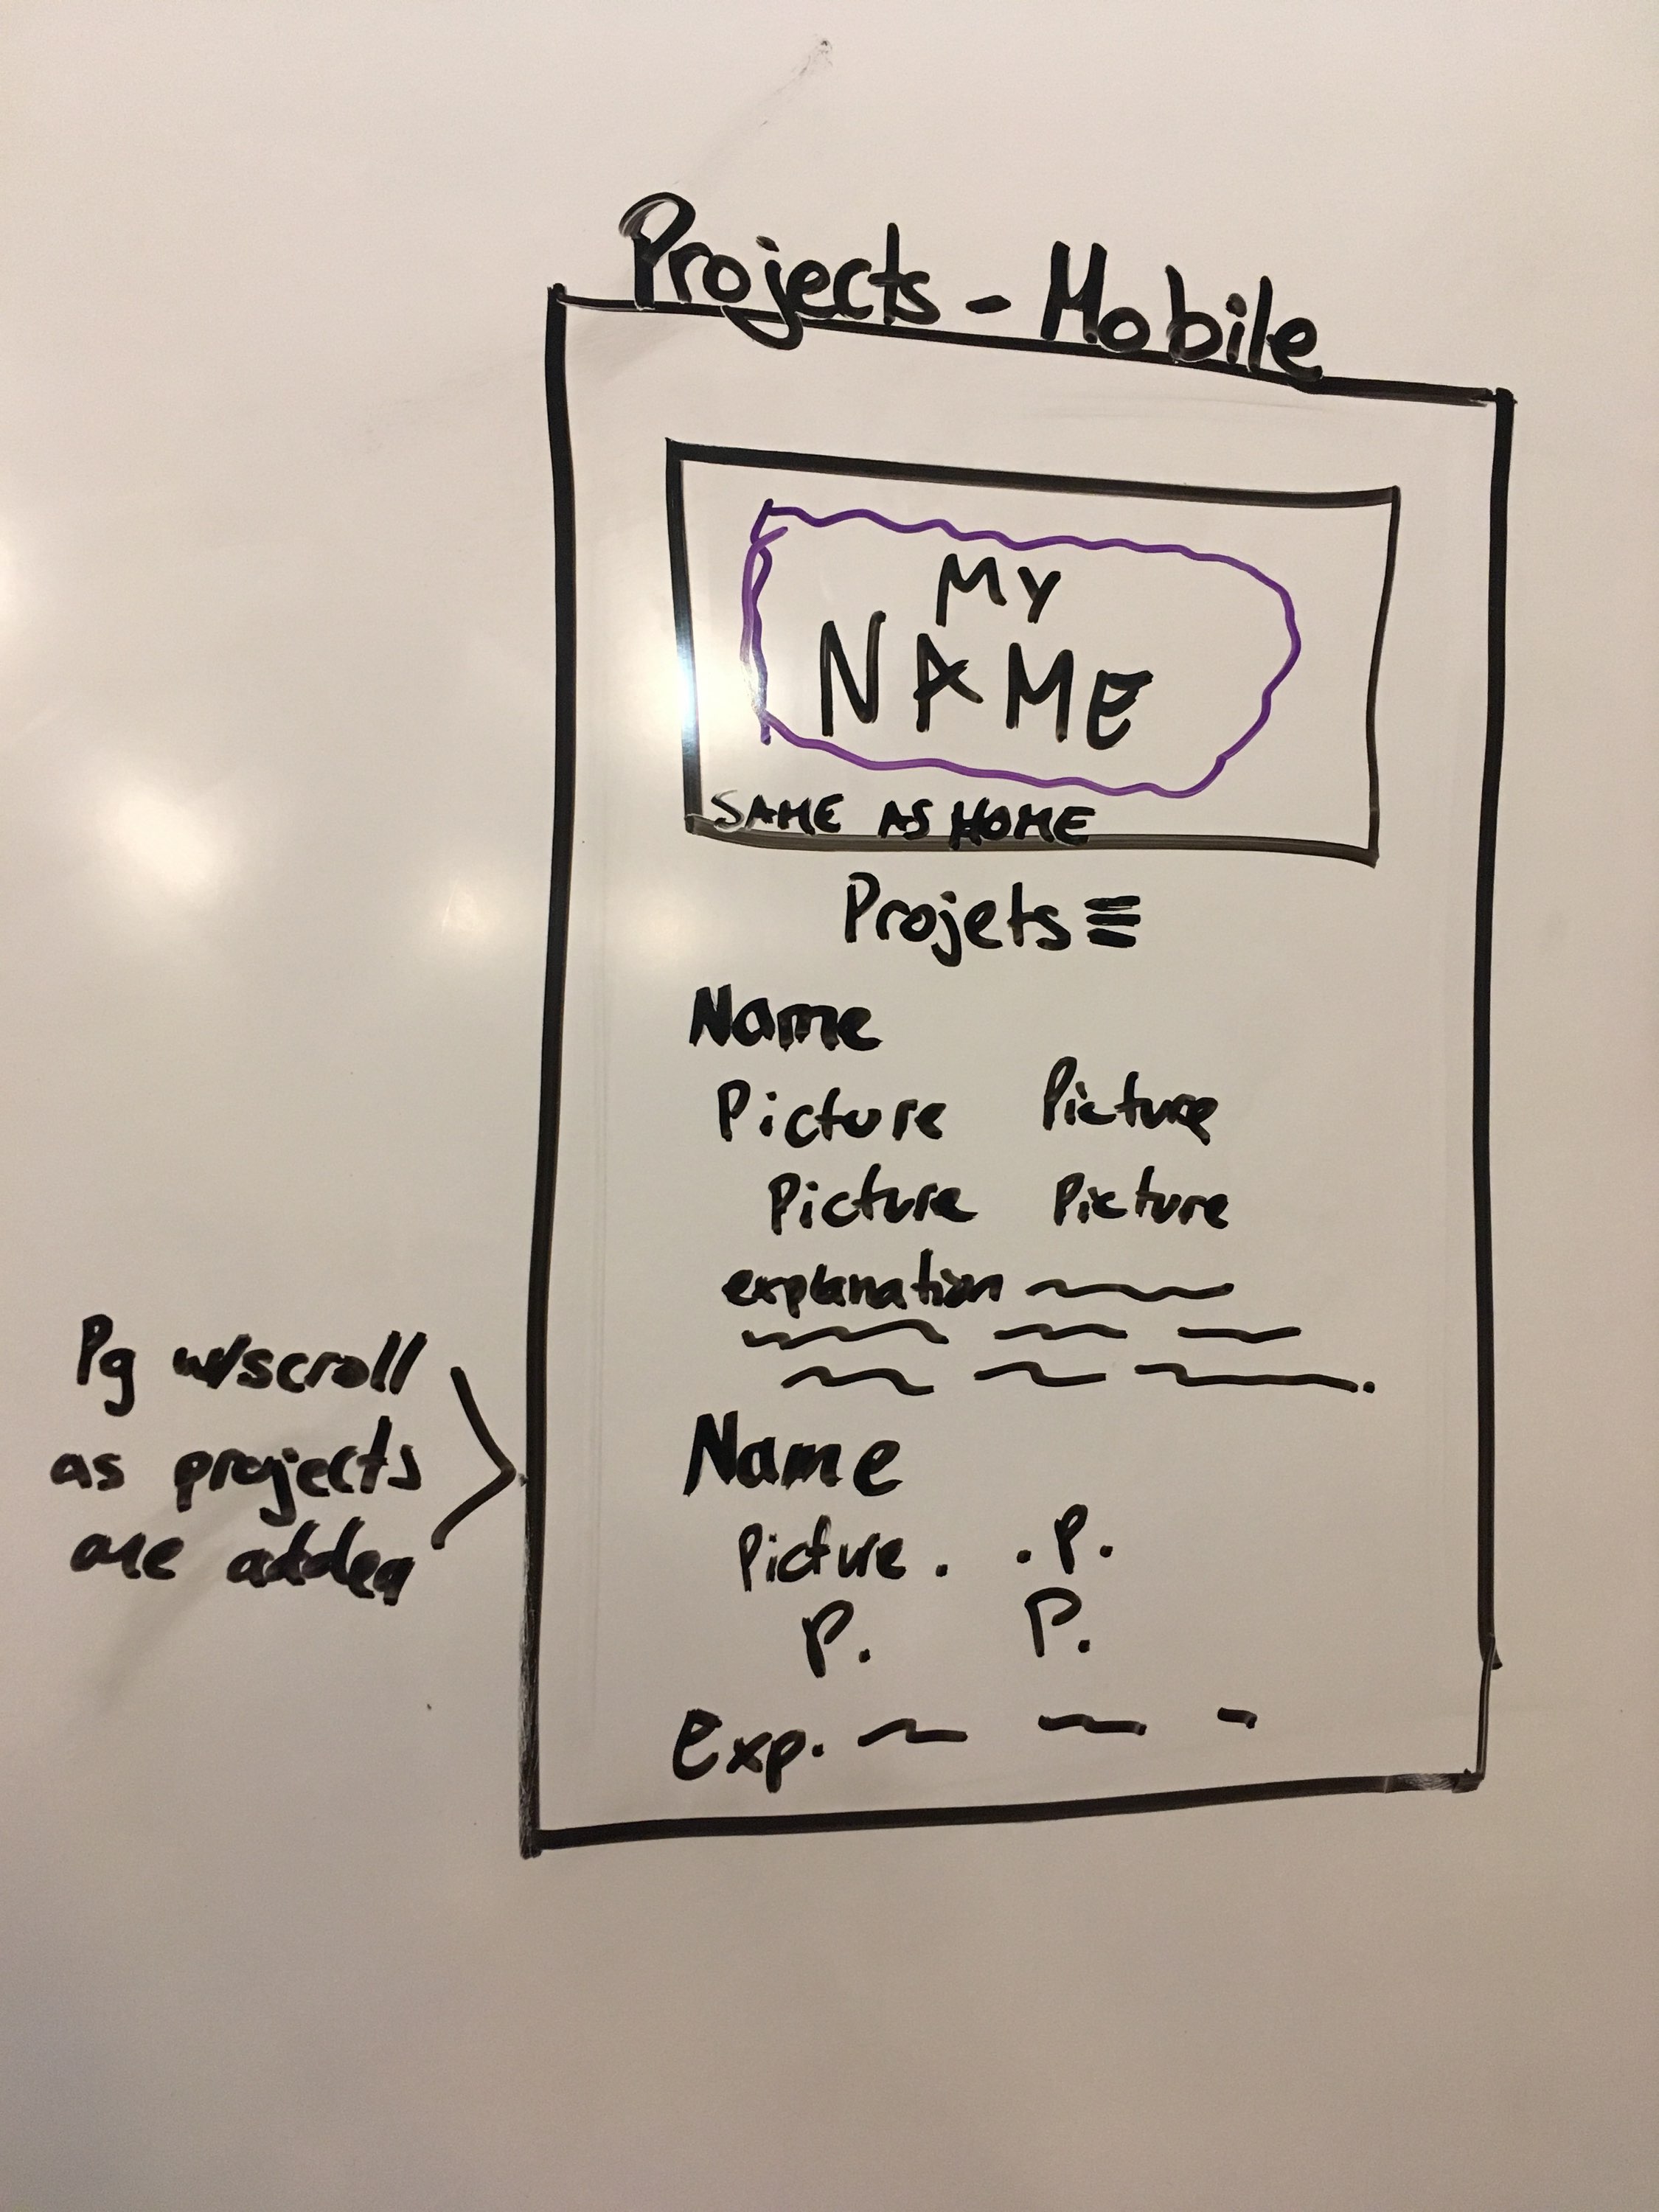 Projects - Mobile
MY
NAME
SAME AS HOME
Projets ≡
Name
Picture Picture
Picture Picture
explanation
Name
Picture. .P.
P. P.
Exp.
Pg w/scroll
as projects
are added